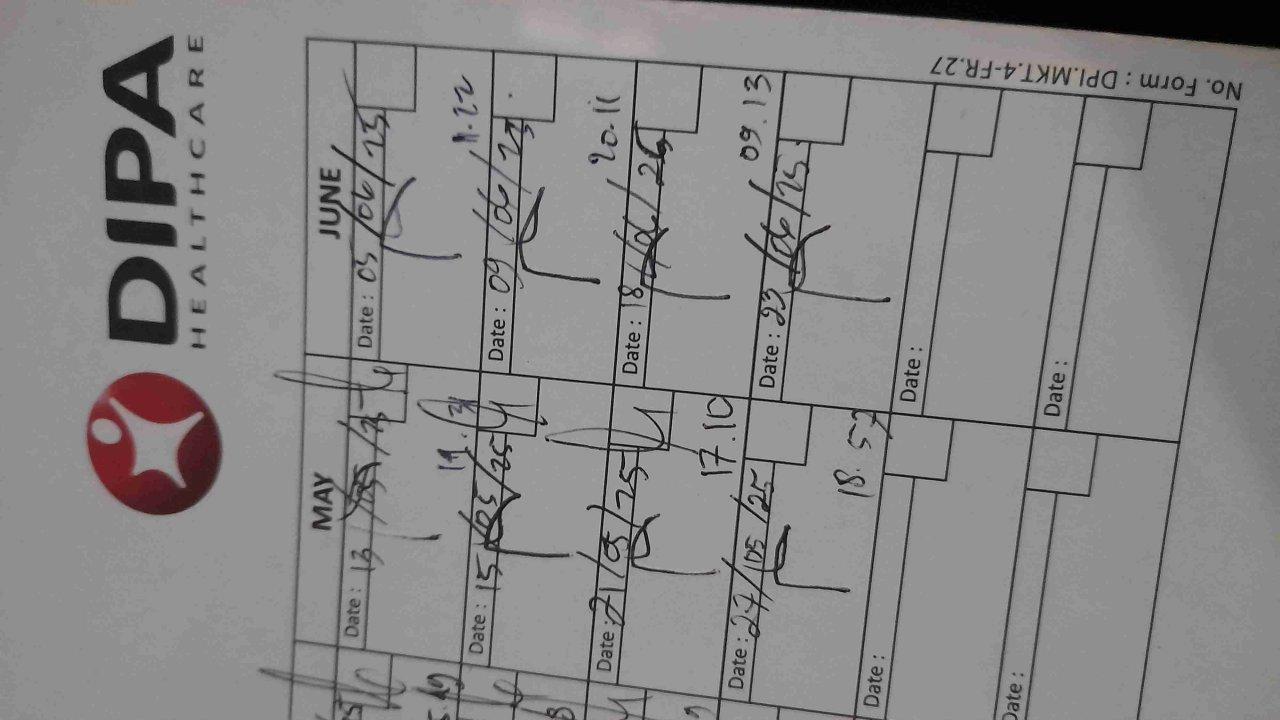 DIPA
HEALTHCARE
No. Form : DPI.MKT.4-FR.27
MAY
Date : 13 /05 / 25
Date : 15 /05 /25
Date : 21 /05 /25
17.10
Date : 27 /05 /25
18.57
Date :
Date :
JUNE
Date : 05 /06 /25
11.22
Date : 09 /06 /25
20.11
Date : 18 /06 /25
09.13
Date : 23 /06 /25
Date :
Date :